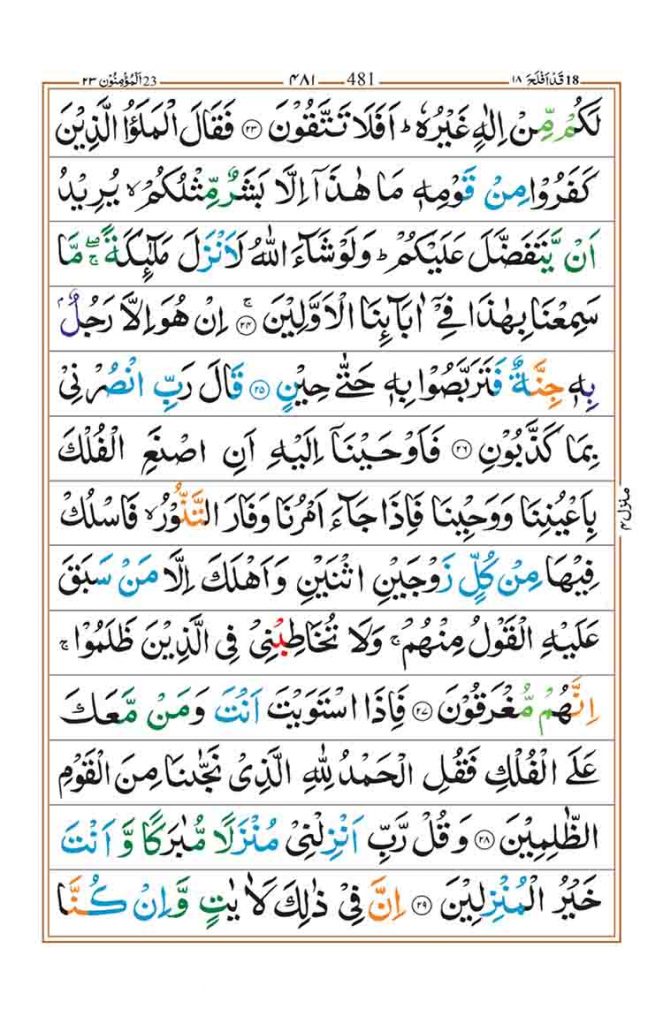 18 قَدْ اَفْلَحَ ١٨ 481 ٤٨١ 23 اَلْمُؤْمِنُوْن ٢٣
لَكُمْ مِّنْ اِلٰهٍ غَيْرُهٗ ؕ اَفَلَا تَتَّقُوْنَ ﴿۲۳﴾ فَقَالَ الْمَلَؤُا الَّذِيْنَ
كَفَرُوْا مِنْ قَوْمِهٖ مَا هٰذَاۤ اِلَّا بَشَرٌ مِّثْلُكُمْ ۙ يُرِيْدُ
اَنْ يَّتَفَضَّلَ عَلَيْكُمْ ؕ وَلَوْ شَآءَ اللّٰهُ لَاَنْزَلَ مَلٰٓئِكَةً ۖۚ مَّا
سَمِعْنَا بِهٰذَا فِيْۤ اٰبَآئِنَا الْاَوَّلِيْنَ ﴿۲۴﴾ ۚ اِنْ هُوَ اِلَّا رَجُلٌۢ
بِهٖ جِنَّةٌ فَتَرَبَّصُوْا بِهٖ حَتّٰى حِيْنٍ ﴿۲۵﴾ قَالَ رَبِّ انْصُرْنِيْ
بِمَا كَذَّبُوْنِ ﴿۲۶﴾ فَاَوْحَيْنَاۤ اِلَيْهِ اَنِ اصْنَعِ الْفُلْكَ
بِاَعْيُنِنَا وَوَحْيِنَا فَاِذَا جَآءَ اَمْرُنَا وَفَارَ التَّنُّوْرُ ۙ فَاسْلُكْ
فِيْهَا مِنْ كُلٍّ زَوْجَيْنِ اثْنَيْنِ وَاَهْلَكَ اِلَّا مَنْ سَبَقَ
عَلَيْهِ الْقَوْلُ مِنْهُمْ ۚ وَلَا تُخَاطِبْنِيْ فِي الَّذِيْنَ ظَلَمُوْا ۚ
اِنَّهُمْ مُّغْرَقُوْنَ ﴿۲۷﴾ فَاِذَا اسْتَوَيْتَ اَنْتَ وَمَنْ مَّعَكَ
عَلَى الْفُلْكِ فَقُلِ الْحَمْدُ لِلّٰهِ الَّذِيْ نَجّٰىنَا مِنَ الْقَوْمِ
الظّٰلِمِيْنَ ﴿۲۸﴾ وَقُلْ رَّبِّ اَنْزِلْنِيْ مُنْزَلًا مُّبٰرَكًا وَّاَنْتَ
خَيْرُ الْمُنْزِلِيْنَ ﴿۲۹﴾ اِنَّ فِيْ ذٰلِكَ لَاٰيٰتٍ وَّاِنْ كُنَّا
منزل ٤